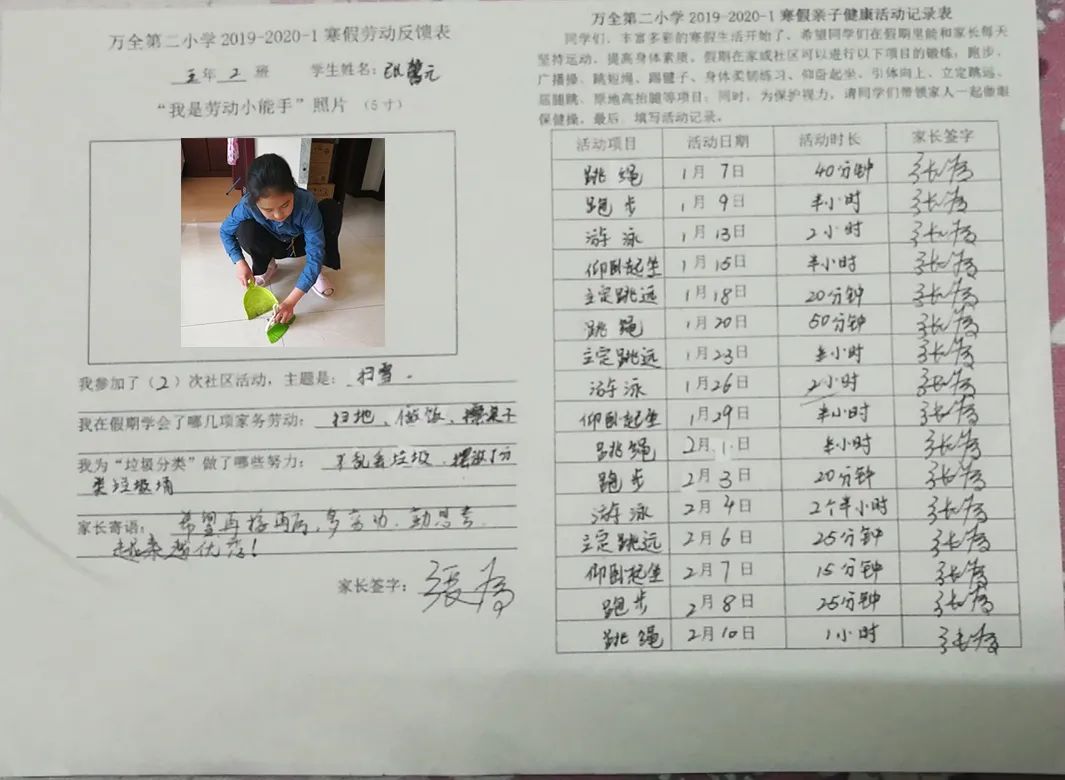 万全第二小学2019-2020-1寒假劳动反馈表
五年 2 班 学生姓名：
“我是劳动小能手”照片（5寸）
我参加了（2）次社区活动，主题是：扫雪.
我在假期学会了哪几项家务劳动：扫地、做饭、擦桌子
我为“垃圾分类”做了哪些努力：不乱丢垃圾、摆放了分
类垃圾桶
家长寄语：希望再接再厉,多劳动.勤思考
越来越优秀！
家长签字：张
万全第二小学2019-2020-1寒假亲子健康活动记录表
同学们，丰富多彩的寒假生活开始了，希望同学们在假期里能和家长每天
坚持运动，提高身体素质。假期在家或社区可以进行以下项目的锻炼：跑步，
广播操、跳短绳、踢毽子、身体柔韧练习、仰卧起坐、引体向上、立定跳远、
屈腿跳、原地高抬腿等项目；同时，为保护视力，请同学们带领家人一起做眼
保健操，最后，填写活动记录。
活动项目 活动日期 活动时长 家长签字
跳绳 1月7日 40分钟 张
跑步 1月9日 半小时 张
游泳 1月13日 2小时 张
仰卧起坐 1月15日 半小时 张
立定跳远 1月18日 20分钟 张
跳绳 1月20日 50分钟 张
立定跳远 1月23日 半小时 张
游泳 1月26日 2小时 张
仰卧起坐 1月29日 半小时 张
跳绳 2月1日 半小时 张
跑步 2月3日 20分钟 张
游泳 2月4日 2个半小时 张
立定跳远 2月6日 25分钟 张
仰卧起坐 2月7日 15分钟 张
跑步 2月8日 25分钟 张
跳绳 2月10日 1小时 张